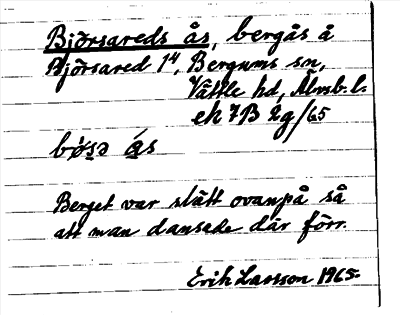 Björsareds ås, bergås å
Björsared 1⁴, Bergums sn,
Vättle hd, Älvsb. l.
ek 7B 2g/65
Berget var slätt ovanpå så
att man dansade där förr.
Erik Larsson 1965.